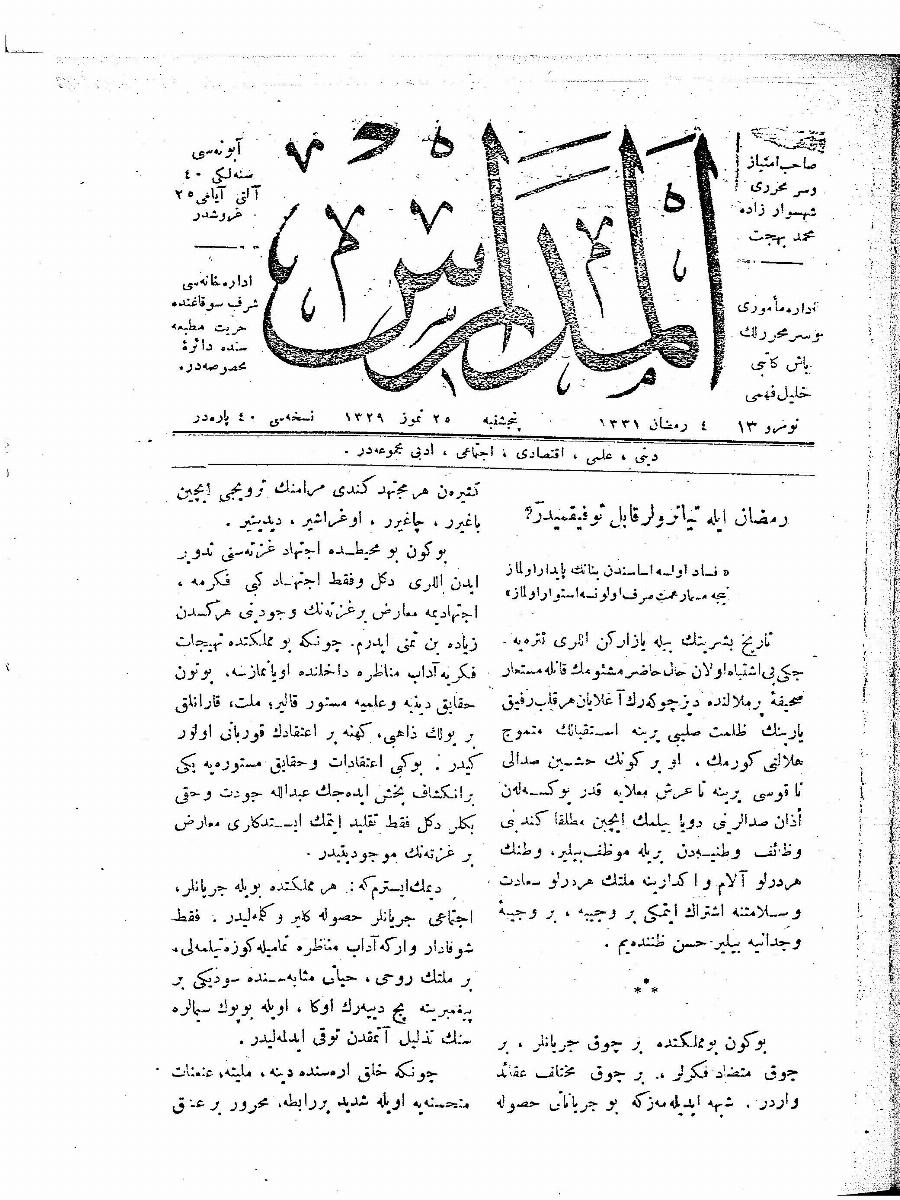 المدارس
صاحب امتیاز
وسر محرری
شهسوار زاده
محمد بهجت
اداره مأموری
وسر محررلك
باش كاتبی
خلیل فهمی
آبونه‌سی
سنه‌لكی ٤٠
آلتی آیلغی ٢٥
غروشدر
اداره‌خانه‌سی
شرف سوقاغنده
حریت مطبعه
سنده دائرۀ
مخصوصه‌در.
نومرو ١٣
٤ رمضان ١٣٣١
پنجشنبه
٢٥ تموز ١٣٢٩
نسخه‌سی ٤٠ پاره‌در
دینی ، علمی ، اقتصادی ، اجتماعی ، ادبی مجموعه‌در .
رمضان ایله تیاترولر قابل توفیقمیدر؟
« فساد اولسه اساسندن بنانك پایدار اولماز
نیجه معمار همت صرف اولونسه استوار اولماز»
تاریخ بشریتك بیله یازاركن اللری تتره‌یه‌
جكی بی اشتباه اولان حال حاضر مشئومك قانله مستعار
صحیفۀ پرملالنده دیز چوكه‌رك آغلایان هر قلب رفیق
یارینك ظلمت صلیبی یرینه استقبالك متموج
هلالنی كورمك ، او بر كونك خشین صدالی
ناقوسی یرینه تا عرش معلایه قدر یوكسه‌لن
أذان صدالرینی دویا بیلمك ایچین مطلقا كندینی
وظائف وطنیه‌دن بریله موظف بیلیر، وطنك
هردرلو آلام و اكدارینه ملتك هردرلو سعادت
وسلامتنه اشتراك ایتمكی بر وجیبه ، بر وجیبۀ
وجدانیه بیلیر حسن ظننده‌یم .
***
بوكون بومملكتده بر چوق جریانلر ، بر
چوق متضاد فكرلر ، بر چوق مختلف عقائد
واردر . شبهه ایدیله‌مزكه بو جریاناتی حصوله
كتیره‌ن هر مجتهد كندی مرامنك ترویجی ایچین
باغیرر ، چاغیرر ، اوغراشیر ، دیدینیر .
بوكون بو محیطده اجتهاد غزته‌سنی تدویر
ایدن اللری دكل وفقط اجتهاد كبی فكرمه ،
اجتهادیمه معارض بر غزته‌نك وجودینی هركسدن
زیاده بن تمنی ایدرم. چونكه بو مملكتده تهیجات
فكریه آداب مناظره داخلنده اویانمازسه، بوتون
حقایق دینیه وعلمیه مستور قالیر؛ ملت، قارانلق
بر یولك ذاهبی، كهنه بر اعتقادك قوربانی اولور
كیدر . بوكبی اعتقادات وحقایق مستوره‌یه یكی
بر انكشاف بخش ایده‌جك عبدالله جودت وحقی
بكلر دكل فقط تقلید ایتمك ایستدكلری معارض
بر غزته‌نك موجودیتیدر .
دیمك ایسترم‌كه : هر مملكتده بویله جریانلر،
اجتماعی جریانلر حصوله كلیر وكله‌لیدر . فقط
شو قادار واركه آداب مناظره تمامیله كوزه‌تیلمه‌لی،
بر ملتك روحی ، حیاتی مثابه‌سنده سودیكی بر
پیغمبرینه پچ دییه‌رك اوكا ، اویله بویوك سیمالره
سنك تذلیل آتمقدن توقی ایدلمه‌لیدر .
چونكه خلق اره‌سنده دینه ، ملیته، عنعنات
متحسنه‌یه اویله شدید بر رابطه، محرور بر عشق